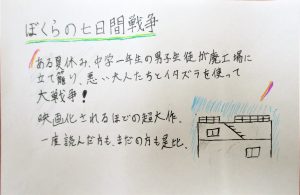 ぼくらの七日間戦争
ある夏休み、中学一年生の男子生徒が廃工場に
立て籠り、悪い大人たちとイタズラを使って
大戦争!
映画化されるほどの超大作。
一度読んだ方も、まだの方も是非。